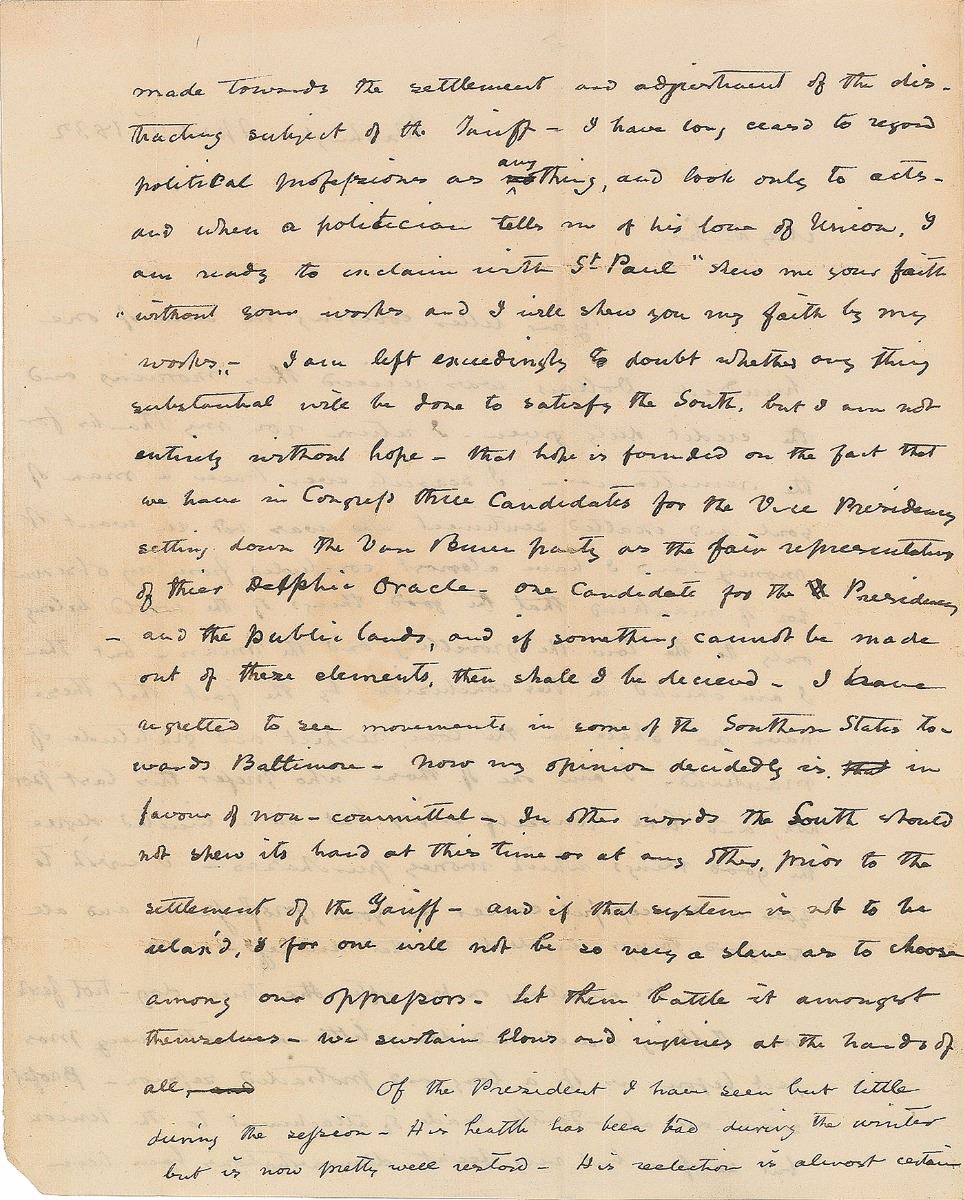 made towards the settlement and adjustment of the dis-
tracting subject of the Tariff – I have long ceased to regard
political professions as
any
nothing, and look only to acts –
and when a politician tells me of his love of Union, I
am ready to exclaim with St Paul "shew me your faith
"without your works and I will shew you my faith by my
works" – I am left exceedingly to doubt whether any thing
substantial will be done to satisfy the South, but I am not
entirely without hope – that hope is founded on the fact that
we have in Congress three Candidates for the Vice Presidency
setting down the Van Buren party as the fair representation
of thier Delphic Oracle – one Candidate for the Presidency
– and the public lands, and if something cannot be made
out of these elements, then shall I be decieved – I have
regretted to see movements in some of the Southern States to-
wards Baltimore – Now my opinion decidedly is that in
favour of non-committal – In other words the South should
not shew its hand at this time or at any other, prior to the
settlement of the Tariff – and if that system is not to be
relax'd, I for one will not be so very a slave as to choose
among our oppressors – let them battle it amongst
themselves – we sustain blows and injuries at the hands of
all, and Of the President I have seen but little
during the session – His health has been bad during the winter
but is now pretty well restored – His reelection is almost certain